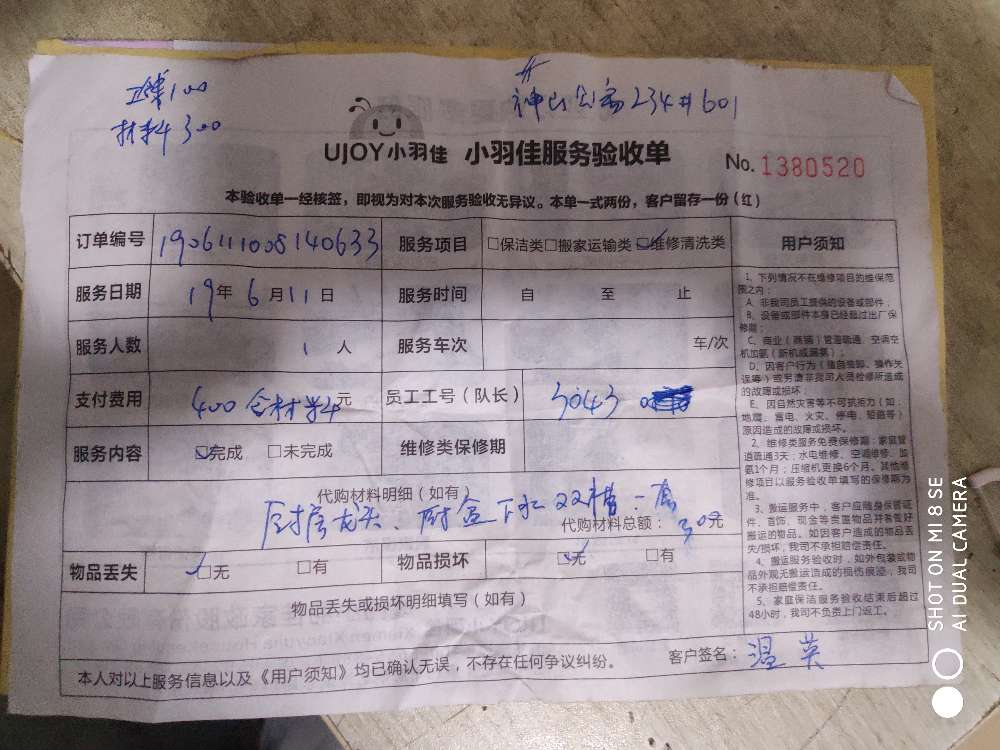 100
材料300
神山公寓234#601
UJOY小羽佳 小羽佳服务验收单
No. 1380520
本验收单一经核签，即视为对本次服务验收无异议。本单一式两份，客户留存一份（红）
订单编号 1906111005140633 服务项目 □保洁类□搬家运输类☑维修清洗类
服务日期 19年6月11日 服务时间 自 至 止
服务人数 1人 服务车次 车/次
支付费用 400含材料元 员工工号（队长） 3043
服务内容 ☑完成 □未完成 维修类保修期
代购材料明细（如有）
厨房龙头、厨盆下水双槽一套
代购材料总额： 元
物品丢失 ☑无 □有 物品损坏 ☑无 □有
物品丢失或损坏明细填写（如有）
本人对以上服务信息以及《用户须知》均已确认无误，不存在任何争议纠纷。
客户签名：温英
用户须知
1、下列情况不在维修项目的维保范
围之内：
A、非我司员工提供的设备或部件；
B、设备或部件本身已经超过出厂保
修期；
C、商业（商铺）管道疏通、空调空
机加氨（新机或漏氨）；
D、因客户行为（擅自拆卸、操作失
误等）或另请非我司人员检修所造成
的故障或损坏；
E、因自然灾害等不可抗拒力（如：
地震、雷电、火灾、停电、短路等）
原因造成的故障或损坏。
2、维修类服务免费保修期：家庭管
道疏通3天；水电维修、空调维修、加
氨1个月；压缩机更换6个月。其他维
修项目以服务验收单填写的保修期为
准。
3、搬运服务中，客户应随身保管证
件、首饰、现金等贵重物品并看管好
搬运的物品。如因客户造成的物品丢
失/损坏，我司不承担赔偿责任。
4、搬运服务验收时，如外包装或物
品外观无搬运造成的损伤痕迹，我司
不承担赔偿责任。
5、家庭保洁服务验收结束后超过
48小时，我司不负责上门返工。
SHOT ON MI 8 SE
AI DUAL CAMERA